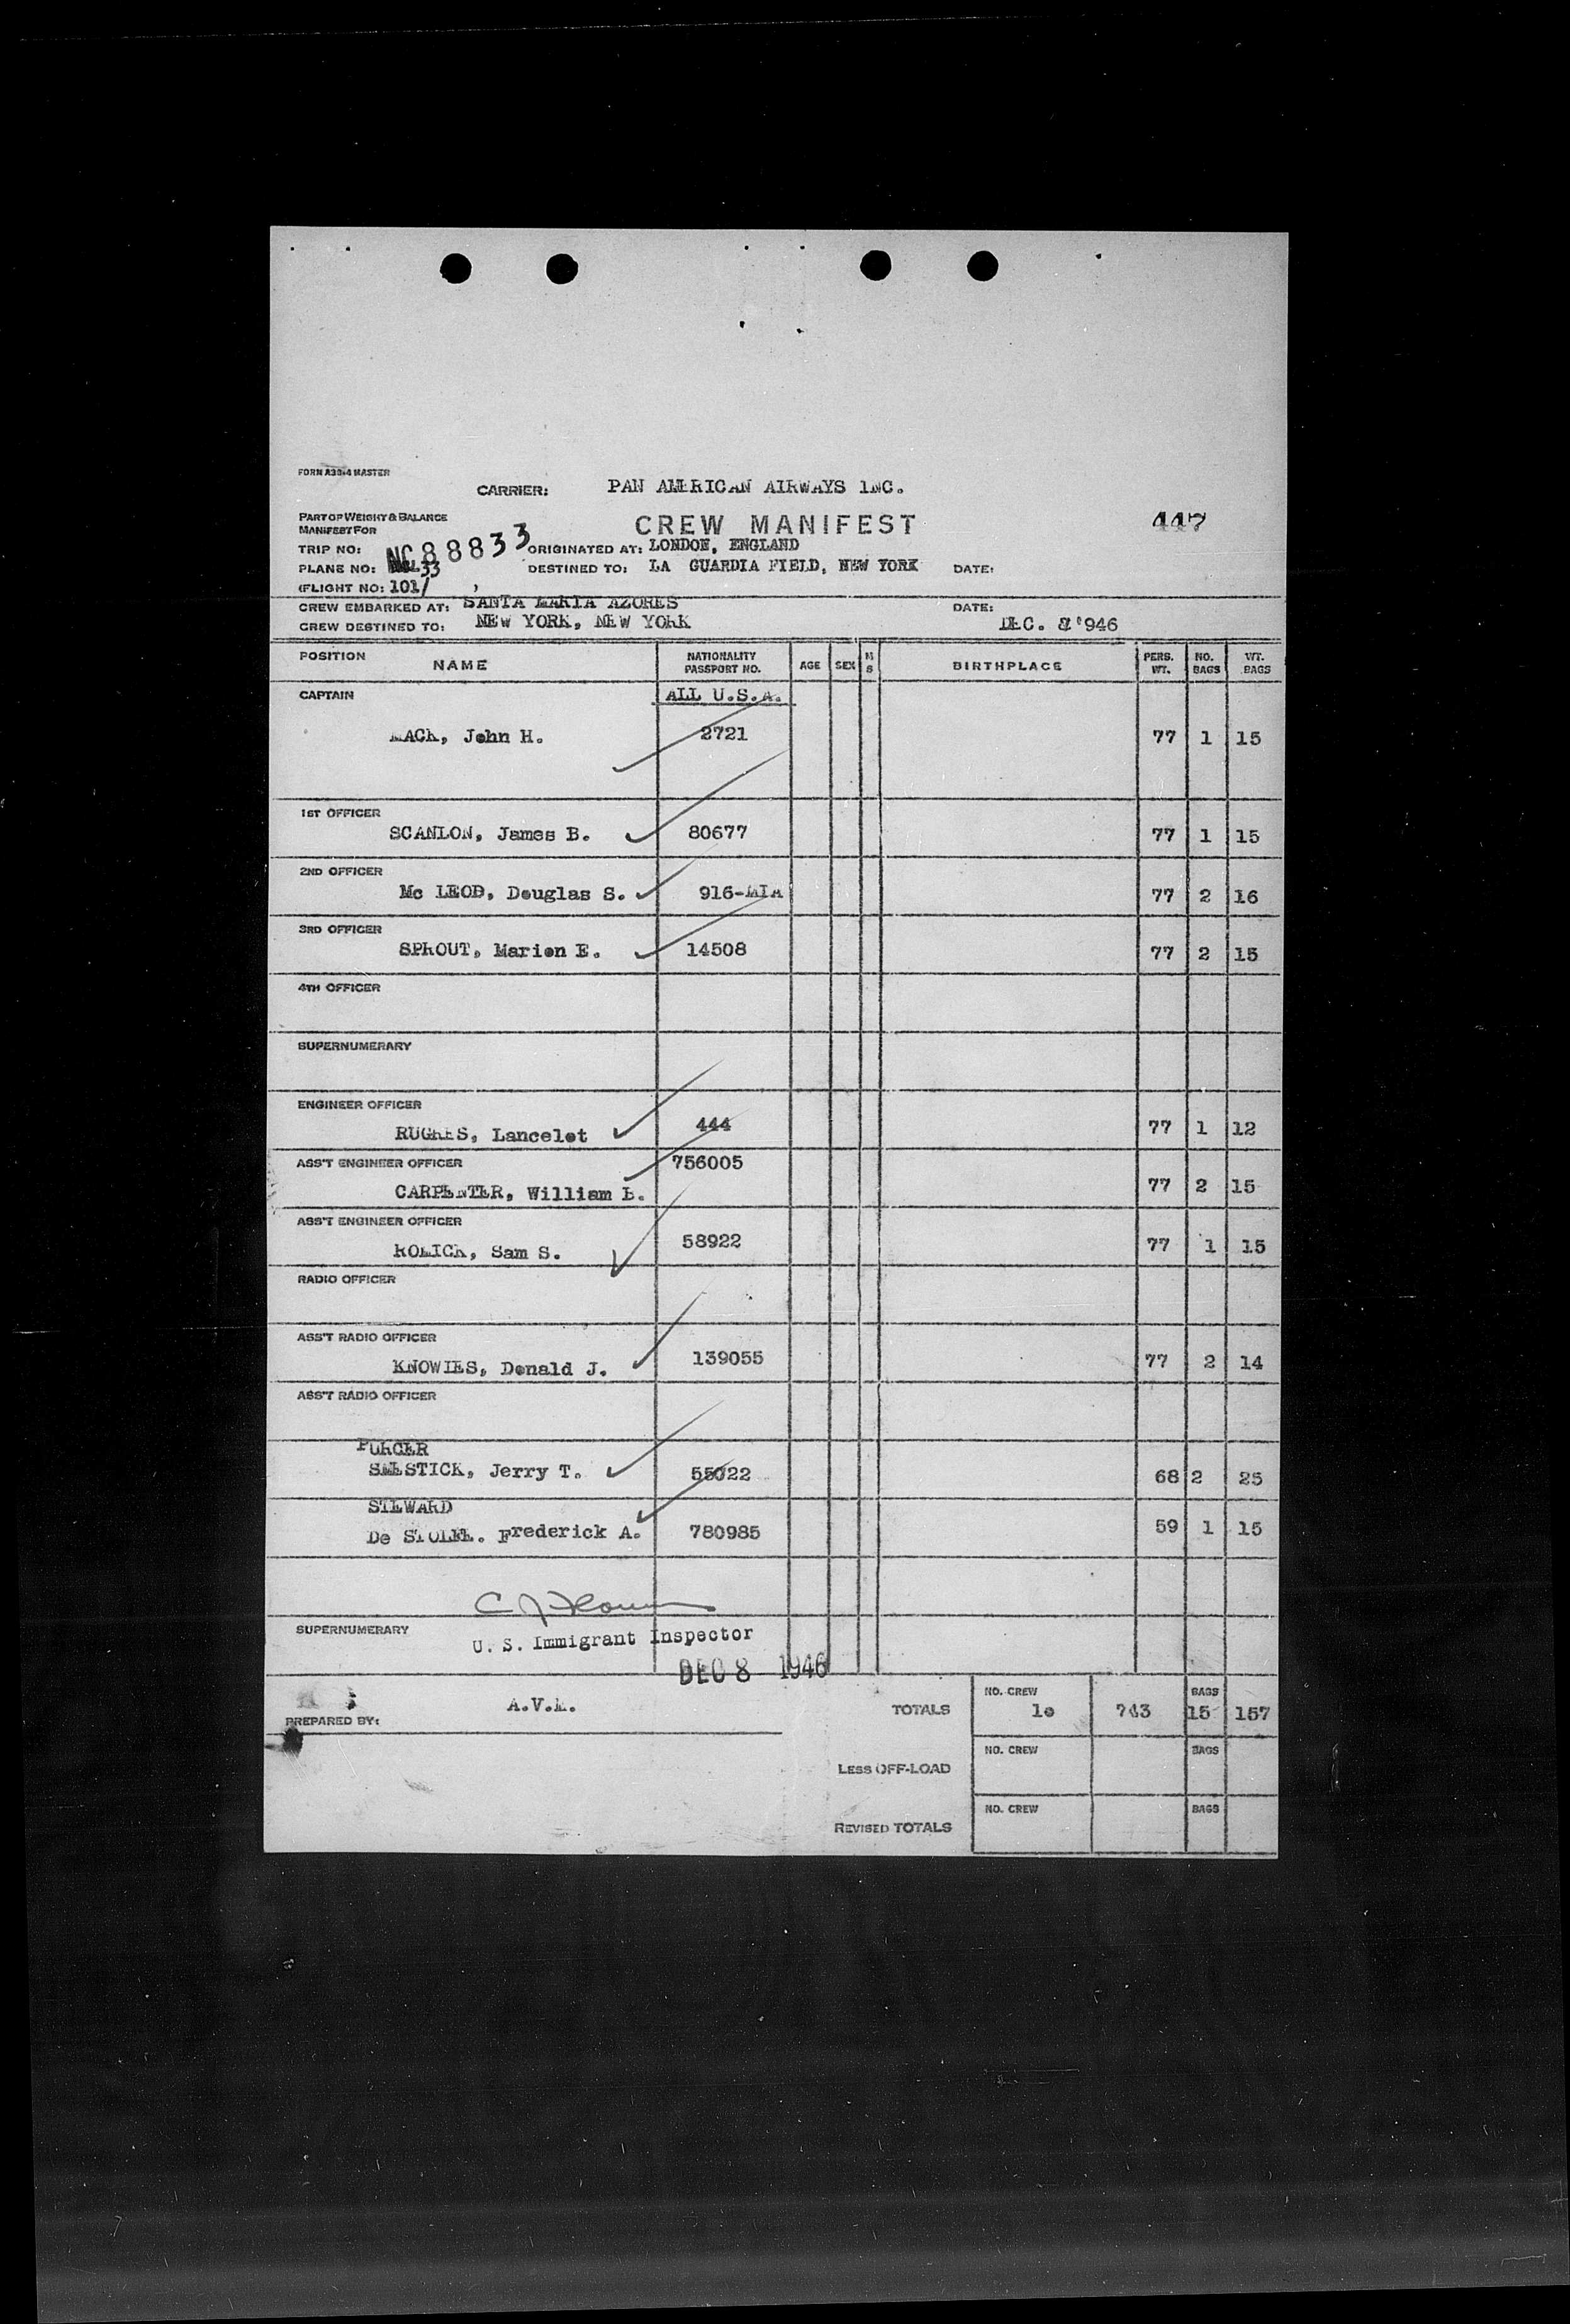 FORM A33-4 MASTER
CARRIER: PAN AMERICAN AIRWAYS INC.
PART OF WEIGHT & BALANCE
MANIFEST FOR
CREW MANIFEST
447
TRIP NO: NC 88833 ORIGINATED AT: LONDON, ENGLAND
PLANE NO: 33 DESTINED TO: LA GUARDIA FIELD, NEW YORK DATE:
(FLIGHT NO: 101/
CREW EMBARKED AT: SANTA MARIA AZORES DATE:
CREW DESTINED TO: NEW YORK, NEW YORK DEC. 946
POSITION NAME NATIONALITY PASSPORT NO. AGE SEX M S BIRTHPLACE PERS. WT. NO. BAGS WT. BAGS
CAPTAIN ALL U.S.A.
MACK, John H. 2721 77 1 15
1ST OFFICER
SCANLON, James B. 80677 77 1 15
2ND OFFICER
Mc LEOD, Douglas S. 916-MIA 77 2 16
3RD OFFICER
SPROUT, Marion E. 14508 77 2 15
4TH OFFICER
SUPERNUMERARY
ENGINEER OFFICER
Lancelot 444 77 1 12
ASS'T ENGINEER OFFICER
CARPENTER, William 756005 77 2 15
ASS'T ENGINEER OFFICER
Sam S. 58922 77 1 15
RADIO OFFICER
ASS'T RADIO OFFICER
KNOWLES, Donald J. 139055 77 2 14
ASS'T RADIO OFFICER
PURCER
Jerry T. 55022 68 2 25
STEWARD
De Frederick A. 780985 59 1 15
SUPERNUMERARY
U. S. Immigrant Inspector
DEC 8 1946
PREPARED BY: A.V.
TOTALS NO. CREW 10 743 BAGS 15 157
LESS OFF-LOAD NO. CREW BAGS
REVISED TOTALS NO. CREW BAGS